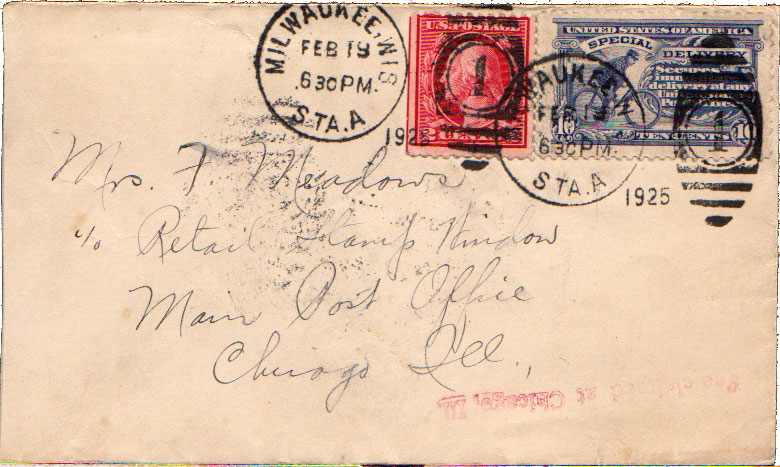 MILWAUKEE, WIS
FEB 19
6 30 PM.
STA. A
1925
U.S. POSTAGE
1
UNITED STATES OF AMERICA
SPECIAL DELIVERY
Secures
delivery at any
10 TEN CENTS 10
WAUKEE, W
FEB 19
6 30 PM.
STA. A
1925
1
Mrs. F. Meadows
c/o Retail Stamp Window
Main Post Office
Chicago Ill.,
at Chicago, Ill.